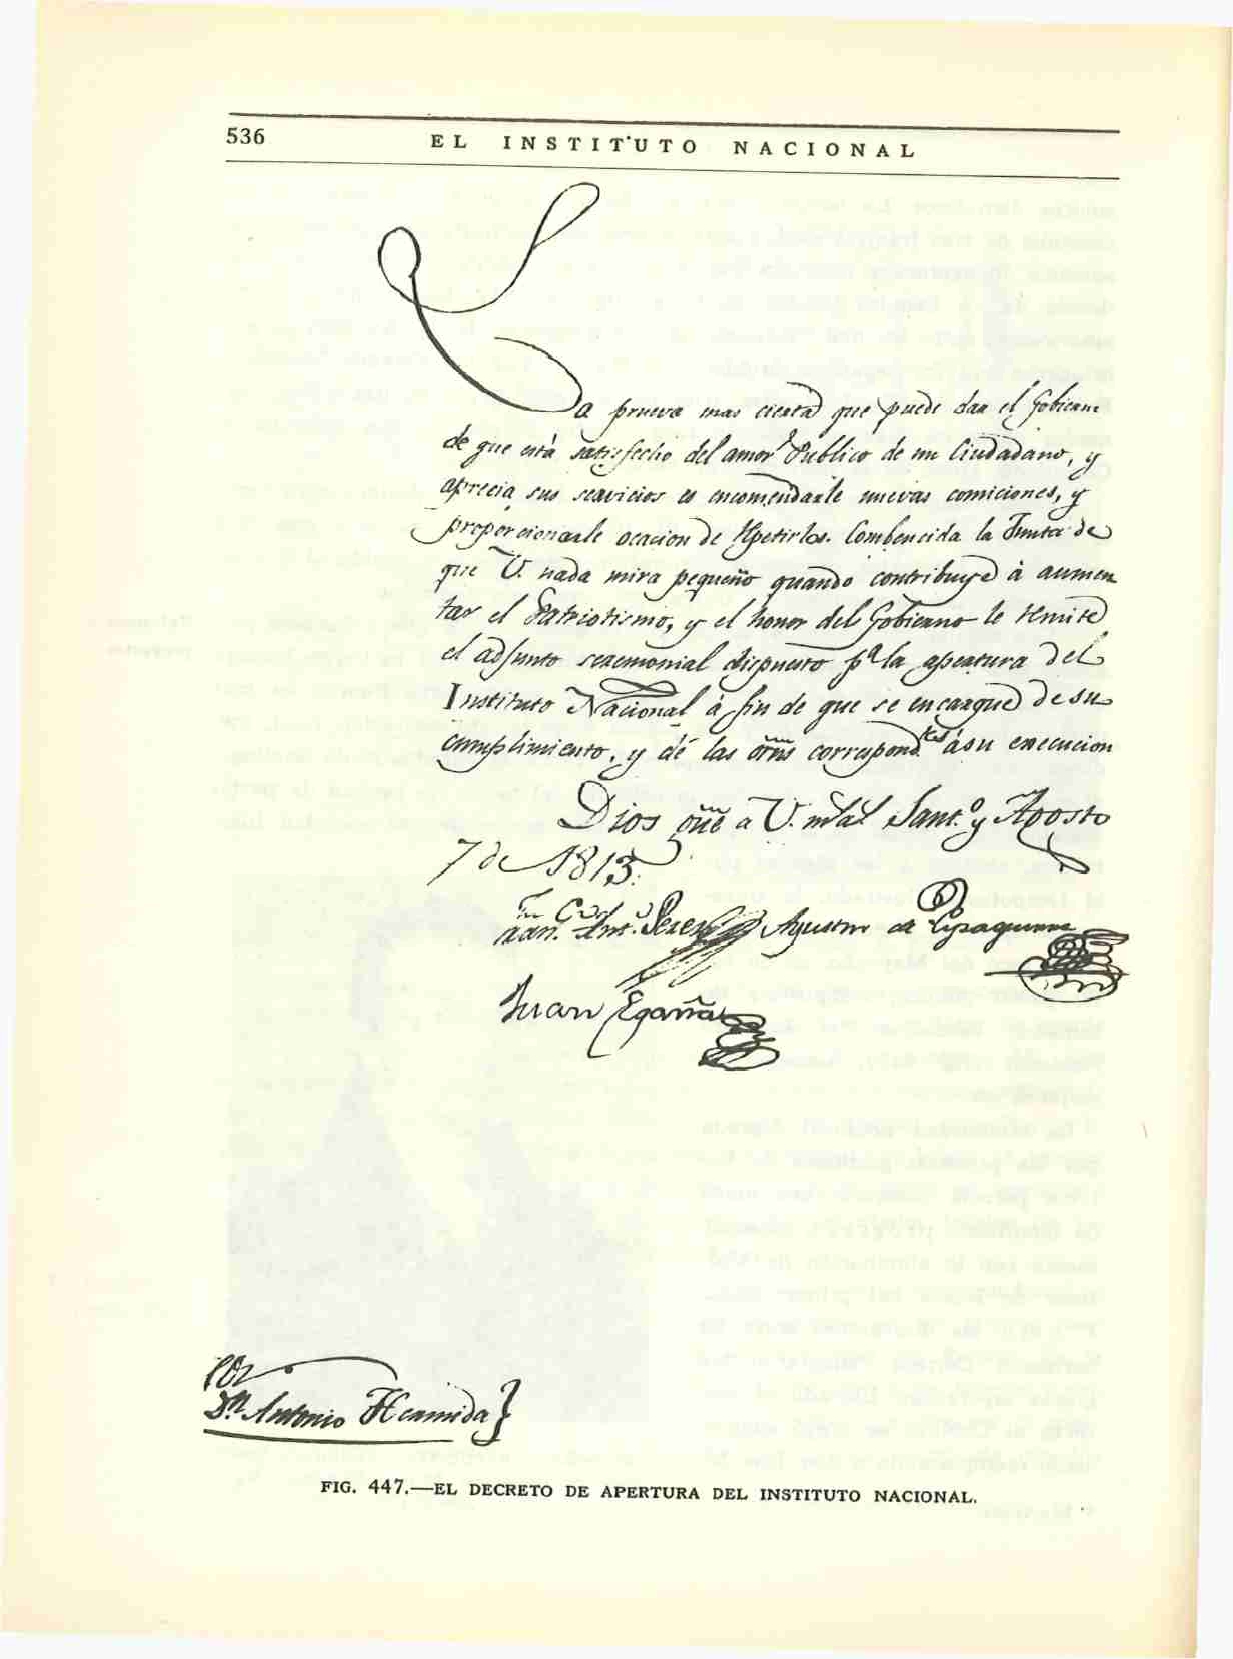 536
EL INSTITUTO NACIONAL
La prueva mas cierta que puede dar el Gobierno
de que está satisfecho del amor Publico de un Ciudadano, y
aprecia sus servicios es encomendarle nuevas comiciones, y
proporcionarle ocacion de repetirlos. Combencida la Junta de
que V. nada mira pequeño quando contribuye à aumen
tar el Patriotismo, y el honor del Gobierno le remite
el adjunto seremonial dispuesto pª la apertura del
Instituto Nacional á fin de que se encargue de su
cumplimiento, y dé las orñs correspondtes á su execucion
Dios gue a V. ms as Sant.º y Agosto
7 de 1813.
Fran.co Ant.º Perez Agustin de Eyzaguirre
Juan Egaña
Sor
Dn Antonio Hermida}
FIG. 447.—EL DECRETO DE APERTURA DEL INSTITUTO NACIONAL.